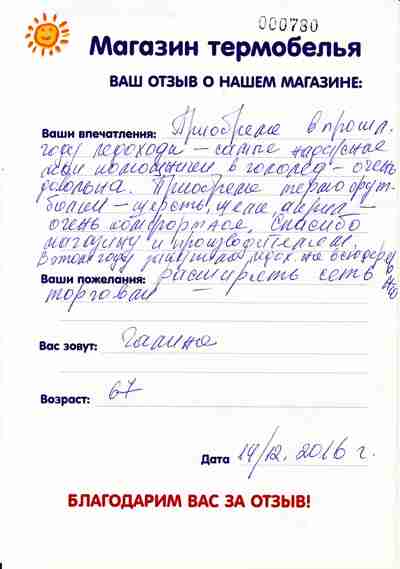 000780
Магазин термобелья
ВАШ ОТЗЫВ О НАШЕМ МАГАЗИНЕ:
Ваши впечатления: Приобрела в прошл.
году ледоходы – самые надежные
мои помощники в гололед – очень
довольна. Приобрела термофут-
болки – шерсть, акрил –
очень комфортное. Спасибо
магазину и производителям.
В этом году
Ваши пожелания: расширять сеть
торговли
Вас зовут: Галина
Возраст: 67
Дата 14/12. 2016 г.
БЛАГОДАРИМ ВАС ЗА ОТЗЫВ!